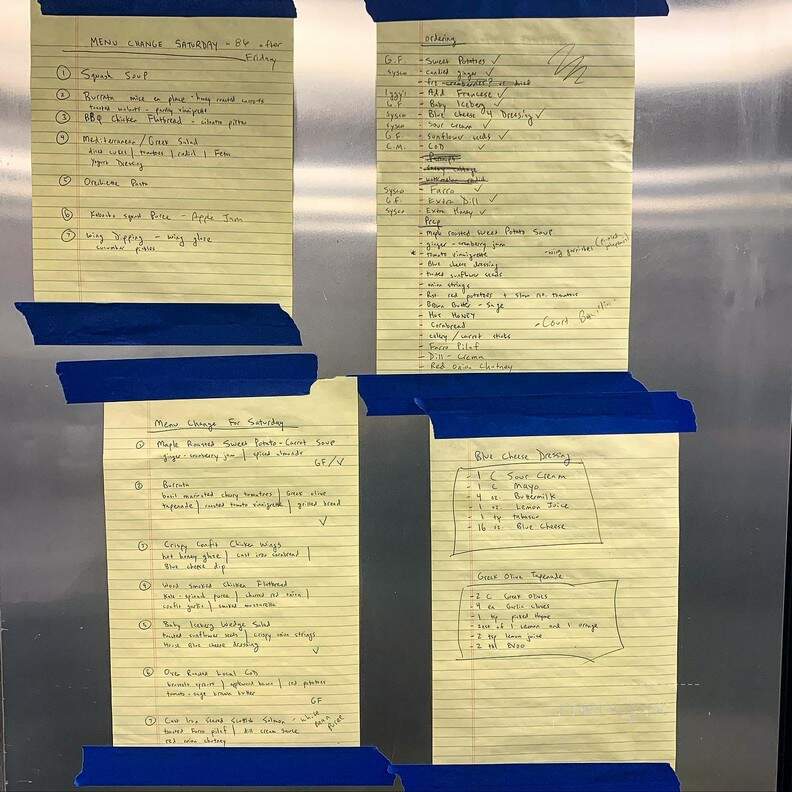 MENU CHANGE SATURDAY - 86 after
Friday
① Squash Soup
② Burrata mice en place - honey roasted carrots
toasted walnuts - parsley vinaigrette
③ BBQ Chicken Flatbread - cilantro pesto
④ Mediterranean / Greek Salad
diced cukes | tomatoes | radish | Feta
Yogurt Dressing
⑤ Orechiette Pasta
⑥ Kabocha squash Puree - Apple Jam
⑦ Wing Dipping - wing glaze
cucumber pickles
ordering
G.F. - Sweet Potatoes ✓
Sysco - candied ginger ✓
- fre cranberries? or dried
Iggy's - Add Francese ✓
G.F - Baby Iceberg ✓
Sysco - Blue cheese 4 Dressing ✓
Sysco - Sour cream ✓
G.F. - Sunflower seeds ✓
C.M. - COD ✓
- watermelon radish
Sysco - Farro ✓
G.F. - Extra Dill ✓
Sysco - Extra Honey ✓
Prep
- Maple roasted Sweet Potato Soup
- ginger-cranberry jam
* - tomato vinaigrette - wing garnishes
- Blue cheese dressing
- toasted sunflower seeds
- onion strings
- Rst. red potatoes + slow rst. tomatoes
- Brown Butter - Sage
- Hot HONEY
- Cornbread - Court Bouillon
- celery / carrot sticks
- Farro Pilaf
- Dill - Crema
- Red Onion Chutney
Menu Change For Saturday
① Maple Roasted Sweet Potato-Carrot Soup
ginger-cranberry jam | spiced almonds
GF/V
② Burrata
basil marinated cherry tomatoes | Greek olive
tapenade | roasted tomato vinaigrette | grilled bread
V
③ Crispy Confit Chicken Wings
hot honey glaze | cast iron cornbread |
Blue cheese dip
④ Wood Smoked Chicken Flatbread
Kale-spinach puree | charred red onion |
confit garlic | smoked mozzarella
⑤ Baby Iceberg Wedge Salad
toasted sunflower seeds | crispy onion strings
House Blue cheese dressing
V
⑥ Oven Roasted Local Cod
brussels sprouts | applewood bacon | red potatoes
tomato-sage brown butter
GF
⑦ Cast Iron Seared Scottish Salmon - white bean puree
toasted Farro pilaf | dill cream sauce
red onion chutney
Blue Cheese Dressing
- 1 C Sour Cream
- 1 C Mayo
- 4 oz. Buttermilk
- 1 oz. Lemon Juice
- 1 tsp tabasco
- 16 oz. Blue Cheese
Greek Olive Tapenade
- 2 C Greek Olives
- 4 ea Garlic cloves
- 1 tsp picked thyme
- zest of 1 lemon and 1 orange
- 2 tsp lemon juice
- 2 tbl EVOO